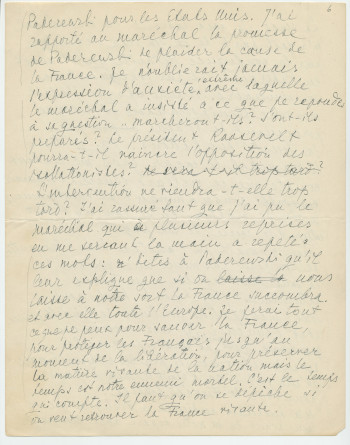 6
Paderewski pour les Etats Unis. J'ai
rapporté au maréchal la promesse
de Paderewski de plaider la cause de
la France. Je n'oublierait jamais
extrême
l'expression d'anxiété, avec laquelle
le maréchal a insisté a ce que je reponde
à sa question .. marcheront-ils? Sont-ils
preparés? Le président Roosevelt
pourra-t-il vaincre l'opposition des
isolationistes? ne sera-t-il trop tard?
L'intervention ne viendra-t-elle trop
tard? J'ai rassuré tant que j'ai pu le
maréchal qui à plusieurs reprises
en me serrant la main a repeté
ces mots: "Dites à Paderewski qu'il
leur explique que si on laisse à nous
laisse à notre sort la France succombra
et avec elle toute l'Europe. Je ferai tout
ce que je peux pour sauver la France,
pour protéger les Français jusqu'au
moment de la libération, pour préserver
la matière vivante de la nation mais le
temps est notre ennemi mortel. C'est le temps
qui compte. Il faut qu'on se dépêche si
on veut retrouver la France vivante.